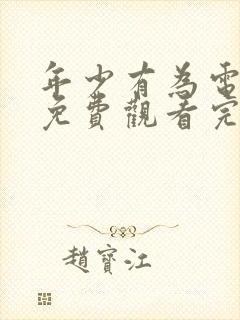 年少有為電
免費觀看完
趙寶江